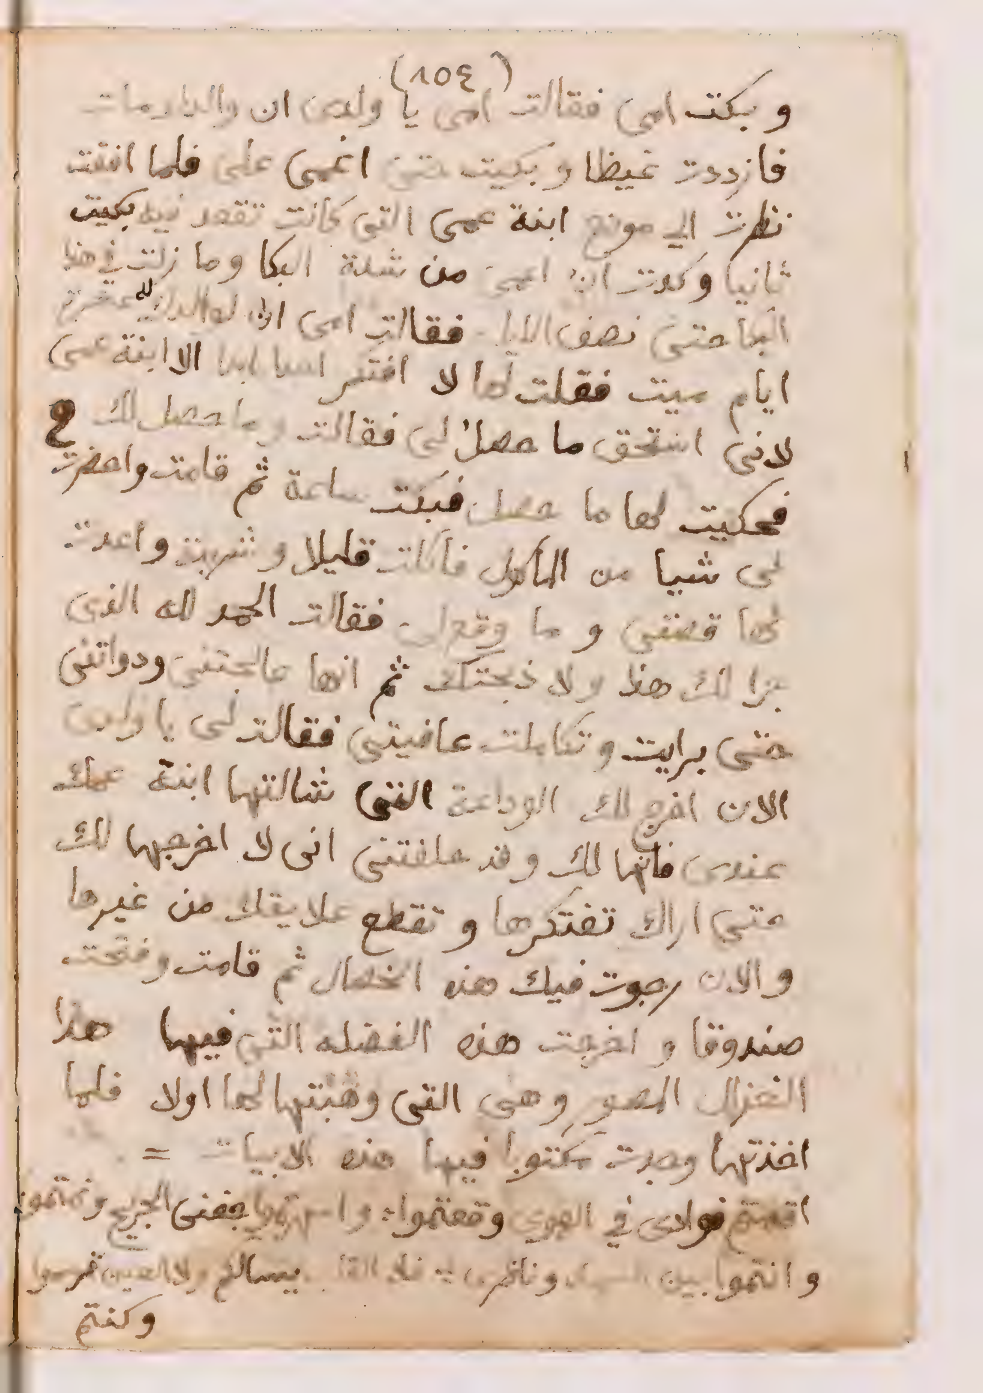 (١٥٤)
و بكت امى فقالت امى يا ولدى ان والدك مات
فازددت غيظا و بكيت حتى اغمى على فلما افقت
نظرت الى موضع ابنة عمى التى كانت تقعد فيه بكيت
ثانيا وكدت ان اغمى من شدة البكا وما زلت فى هذا
البكا حتى نصف الليل فقالت امى ان لوالدك عشرة
ايام ميت فقلت لها لا افتكر احدا ابدا الا ابنة عمى
لانى استحق ما حصل لى فقالت وما حصل لك
فحكيت لها ما حصل فبكت ساعة ثم قامت واحضرت
لى شيا من الماكول فاكلت قليلا وشربت واعدت
لها قصتى و ما وقع لى فقالت الحمد لله الذى
جرا لك هذا ولا ذبحتك ثم انها عالجتنى ودواتنى
حتى برايت وتكاملت عافيتى فقالت لى يا ولدى
الان اخرج لك الوداعة التى شالتها ابنة عمك
عندى فانها لك وقد حلفتنى انى لا اخرجها لك
حتى اراك تفتكرها و تقطع علايقك من غيرها
و الان رجوت فيك هذه الخصال ثم قامت وفتحت
صندوقا و اخرجت هذه الفضله التى فيها هذا
الغزال المصور وهى التى وهبتها لها اولا فلما
اخذتها وجدت مكتوبا فيها هذه الابيات =
اقمتم فوادى فى الهوى وقعدتموا واسهرتموا جفنى الجريح ونمتموا
و انتموا بين السهاد وناظرى فلا القلب يسالكم ولا العين
وكنتم